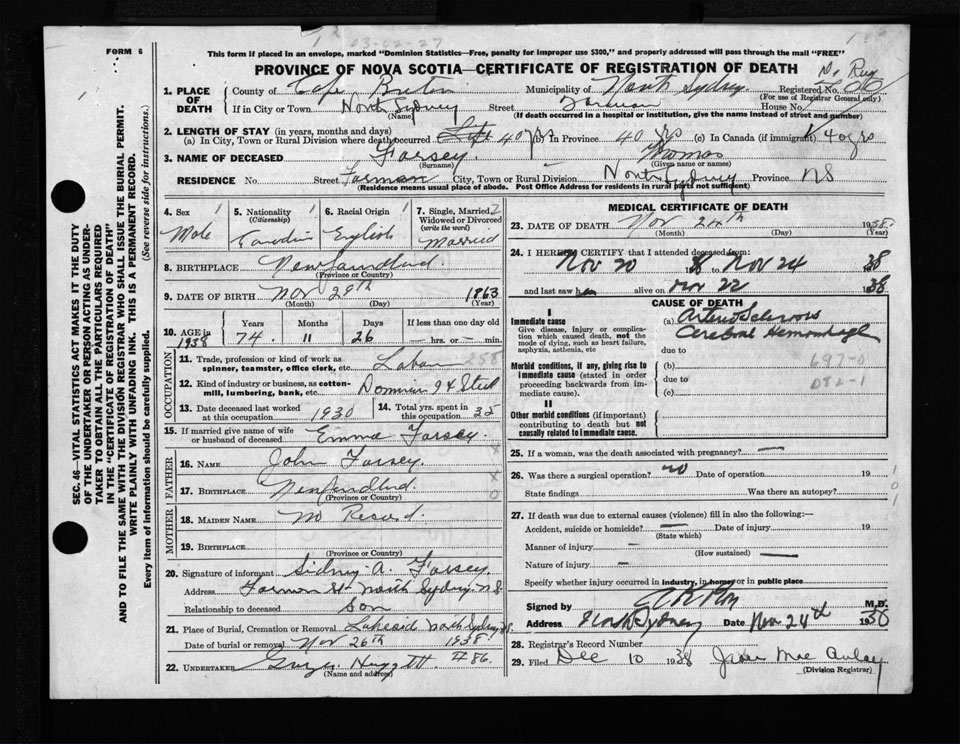 FORM 6
This form if placed in an envelope, marked "Dominion Statistics—Free, penalty for improper use $300," and properly addressed will pass through the mail "FREE"
PROVINCE OF NOVA SCOTIA—CERTIFICATE OF REGISTRATION OF DEATH
1. PLACE OF DEATH County of Cape Breton Municipality of North Sydney Registered No.
(For use of Registrar General only)
If in City or Town North Sydney Street Forman House No.
(Name) (If death occurred in a hospital or institution, give name instead of street and number)
2. LENGTH OF STAY (in years, months and days)
(a) In City, Town or Rural Division where death occurred 40 yrs (b) In Province 40 yrs (c) In Canada (if immigrant) 40 yrs
3. NAME OF DECEASED Forsey. Thomas
(Surname) (Given name or names)
RESIDENCE No. Street Forman City, Town or Rural Division North Sydney Province NS
(Residence means usual place of abode. Post Office Address for residents in rural parts not sufficient)
4. Sex Male
5. Nationality (Citizenship) Canadian
6. Racial Origin English
7. Single, Married, Widowed or Divorced (write the word) Married
8. BIRTHPLACE Newfoundland.
(Province or Country)
9. DATE OF BIRTH Nov 29th 1863
(Month) (Day) (Year)
10. AGE in 1938 Years 74 Months 11 Days 26 If less than one day — hrs. or — min.
OCCUPATION
11. Trade, profession or kind of work as spinner, teamster, office clerk, etc. Labor 258
12. Kind of industry or business, as cotton-mill, lumbering, bank, etc. Dominion Steel
13. Date deceased last worked at this occupation 1930
14. Total yrs. spent in this occupation 35
15. If married give name of wife or husband of deceased Emma Forsey.
FATHER
16. NAME John Forsey.
17. BIRTHPLACE Newfoundland.
(Province or Country)
MOTHER
18. MAIDEN NAME No Record.
19. BIRTHPLACE
(Province or Country)
20. Signature of informant Sidney A. Forsey.
Address Forman St North Sydney NS
Relationship to deceased Son
21. Place of Burial, Cremation or Removal Lakeside North Sydney NS.
Date of burial or removal Nov 26th 1938.
22. UNDERTAKER Huggett #86.
(Name and address)
MEDICAL CERTIFICATE OF DEATH
23. DATE OF DEATH Nov 24th 1938
(Month) (Day) (Year)
24. I HEREBY CERTIFY that I attended deceased from:
Nov 20 38 to Nov 24 38
and last saw him alive on Nov 22 38
CAUSE OF DEATH
I
Immediate cause
Give disease, injury or complication which caused death, not the mode of dying, such as heart failure, asphyxia, asthenia, etc
(a) Arteriosclerosis
Cerebral Hemorrhage
due to
Morbid conditions, if any, giving rise to immediate cause (stated in order proceeding backwards from immediate cause)
(b) 697-0
due to 082-1
(c)
II
Other morbid conditions (if important) contributing to death but not causally related to immediate cause.
25. If a woman, was the death associated with pregnancy? —
26. Was there a surgical operation? no Date of operation 19
State findings Was there an autopsy?
27. If death was due to external causes (violence) fill in also the following:—
Accident, suicide or homicide? — Date of injury 19
(State which)
Manner of injury —
(How sustained)
Nature of injury —
Specify whether injury occurred in industry, in home, or in public place
Signed by M.D.
Address North Sydney Date Nov 24th 1938
28. Registrar's Record Number
29. Filed Dec 10 1938 Mac Aulay
(Division Registrar)
SEC. 46—VITAL STATISTICS ACT MAKES IT THE DUTY
OF THE UNDERTAKER OR PERSON ACTING AS UNDER-
TAKER TO OBTAIN ALL THE PARTICULARS REQUIRED
IN THE "CERTIFICATE OF REGISTRATION OF DEATH"
AND TO FILE THE SAME WITH THE DIVISION REGISTRAR WHO SHALL ISSUE THE BURIAL PERMIT.
WRITE PLAINLY WITH UNFADING INK. THIS IS A PERMANENT RECORD.
Every item of information should be carefully supplied. (See reverse side for instructions.)